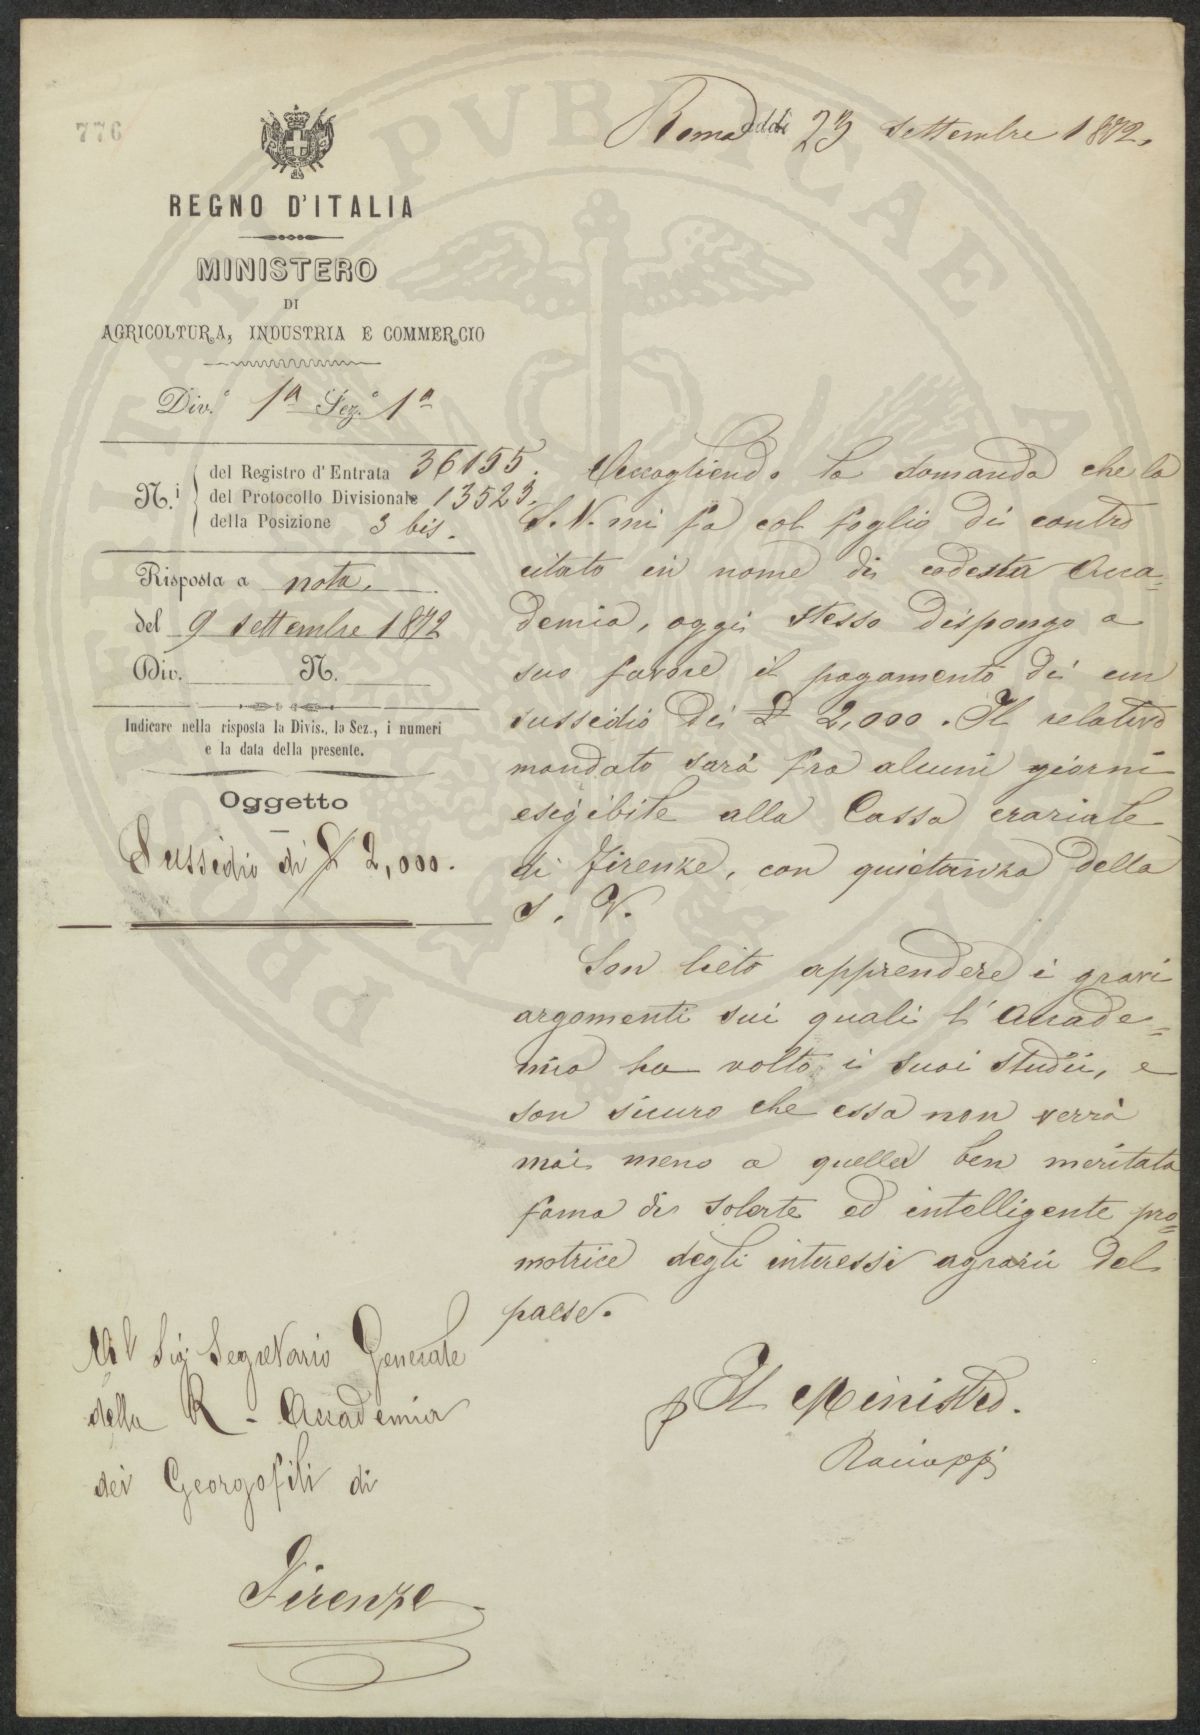 776
Roma addì 23 settembre 1872.
REGNO D'ITALIA
MINISTERO
DI
AGRICOLTURA, INDUSTRIA E COMMERCIO
Div.e 1a Sez.e 1a
N.i
del Registro d'Entrata 36155.
del Protocollo Divisionale 13523.
della Posizione 3 bis.
Risposta a nota
del 9 settembre 1872
Div. N.
Indicare nella risposta la Divis., la Sez., i numeri
e la data della presente.
Oggetto
Sussidio di £ 2,000.
Accogliendo la domanda che la
S. V. mi fa col foglio di contro
citato in nome di codesta Acca=
demia, oggi stesso dispongo a
suo favore il pagamento di un
sussidio di £ 2,000. Il relativo
mandato sarà fra alcuni giorni
esigibile alla Cassa erariale
di Firenze, con quietanza della
S. V.
Son lieto apprendere i gravi
argomenti sui quali l'Accade=
mia ha volto i suoi studii, e
son sicuro che essa non verrà
mai meno a quella ben meritata
fama di solerte ed intelligente pro=
motrice degli interessi agrarii del
paese.
p Il Ministro.
Racioppi
Al Sig Segretario Generale
della R. Accademia
dei Georgofili di
Firenze
PROPRIETAT PVBLICAE